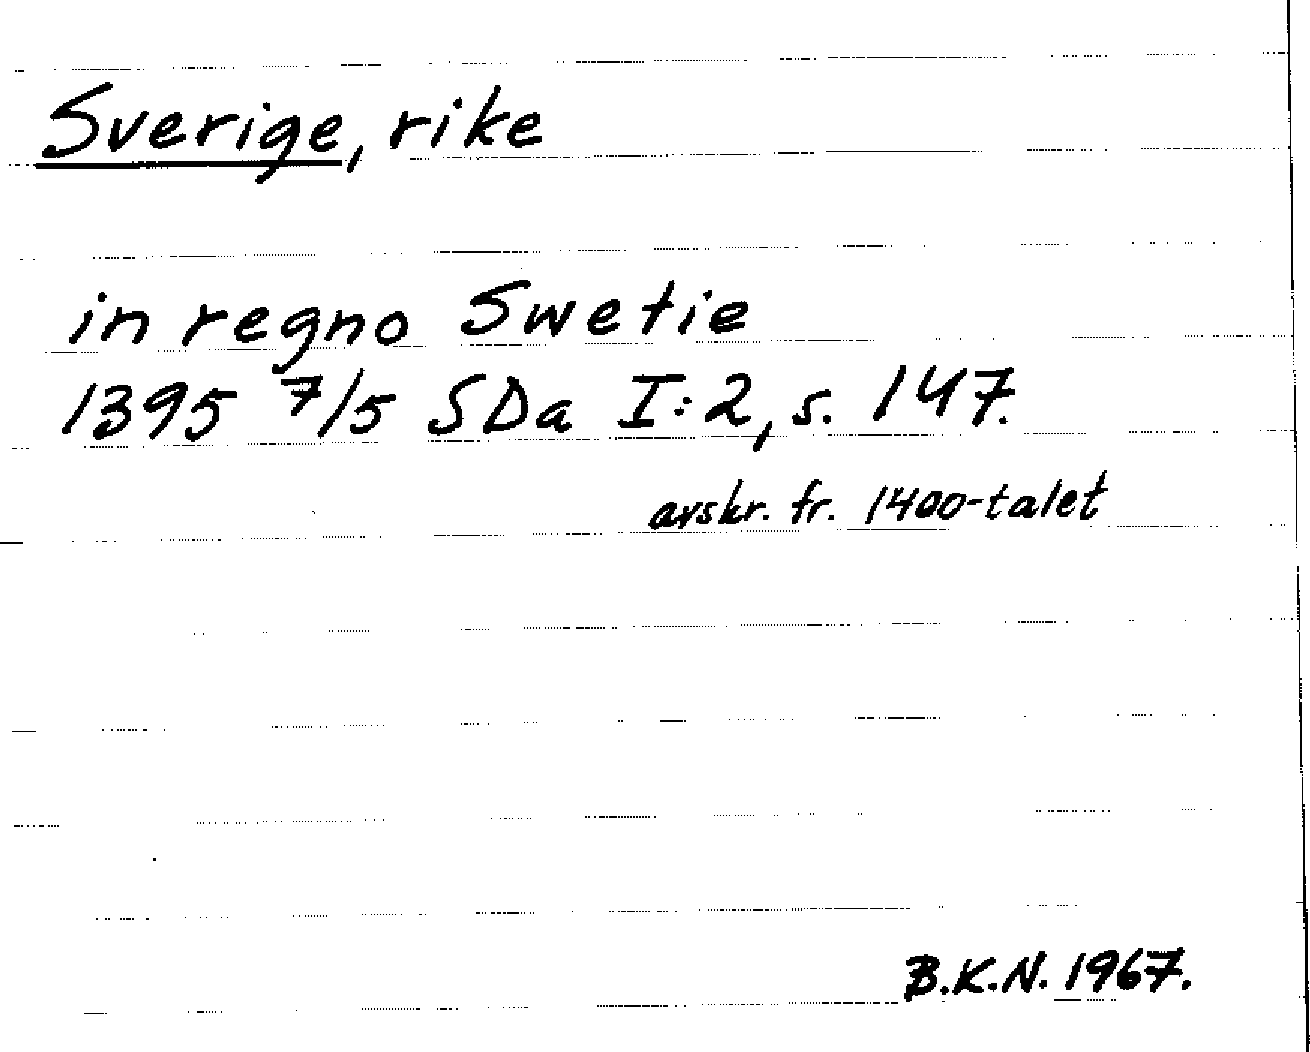 Sverige, rike
in regno Swetie
1395 7/5 SDa I:2, s. 147.
avskr. fr. 1400-talet
B.K.N. 1967.